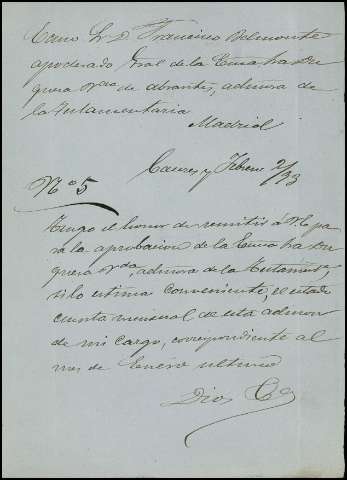 Excmo Sr D Francisco Belmonte
apoderado Gral de la Excma Sra Du
quesa Vda de Abrantes, admora de
la Testamentaria
Madrid
Caceres y Febrero 2/93
Nº 5
Tengo el honor de remitir á V.E. pa
ra la aprobacion de la Excma Sra Du
quesa Vda, admora de la Testamta,
si lo estima conveniente, el estado
cuenta mensual de esta admon
de mi cargo, correspondiente al
mes de Enero ultimo
Dios &